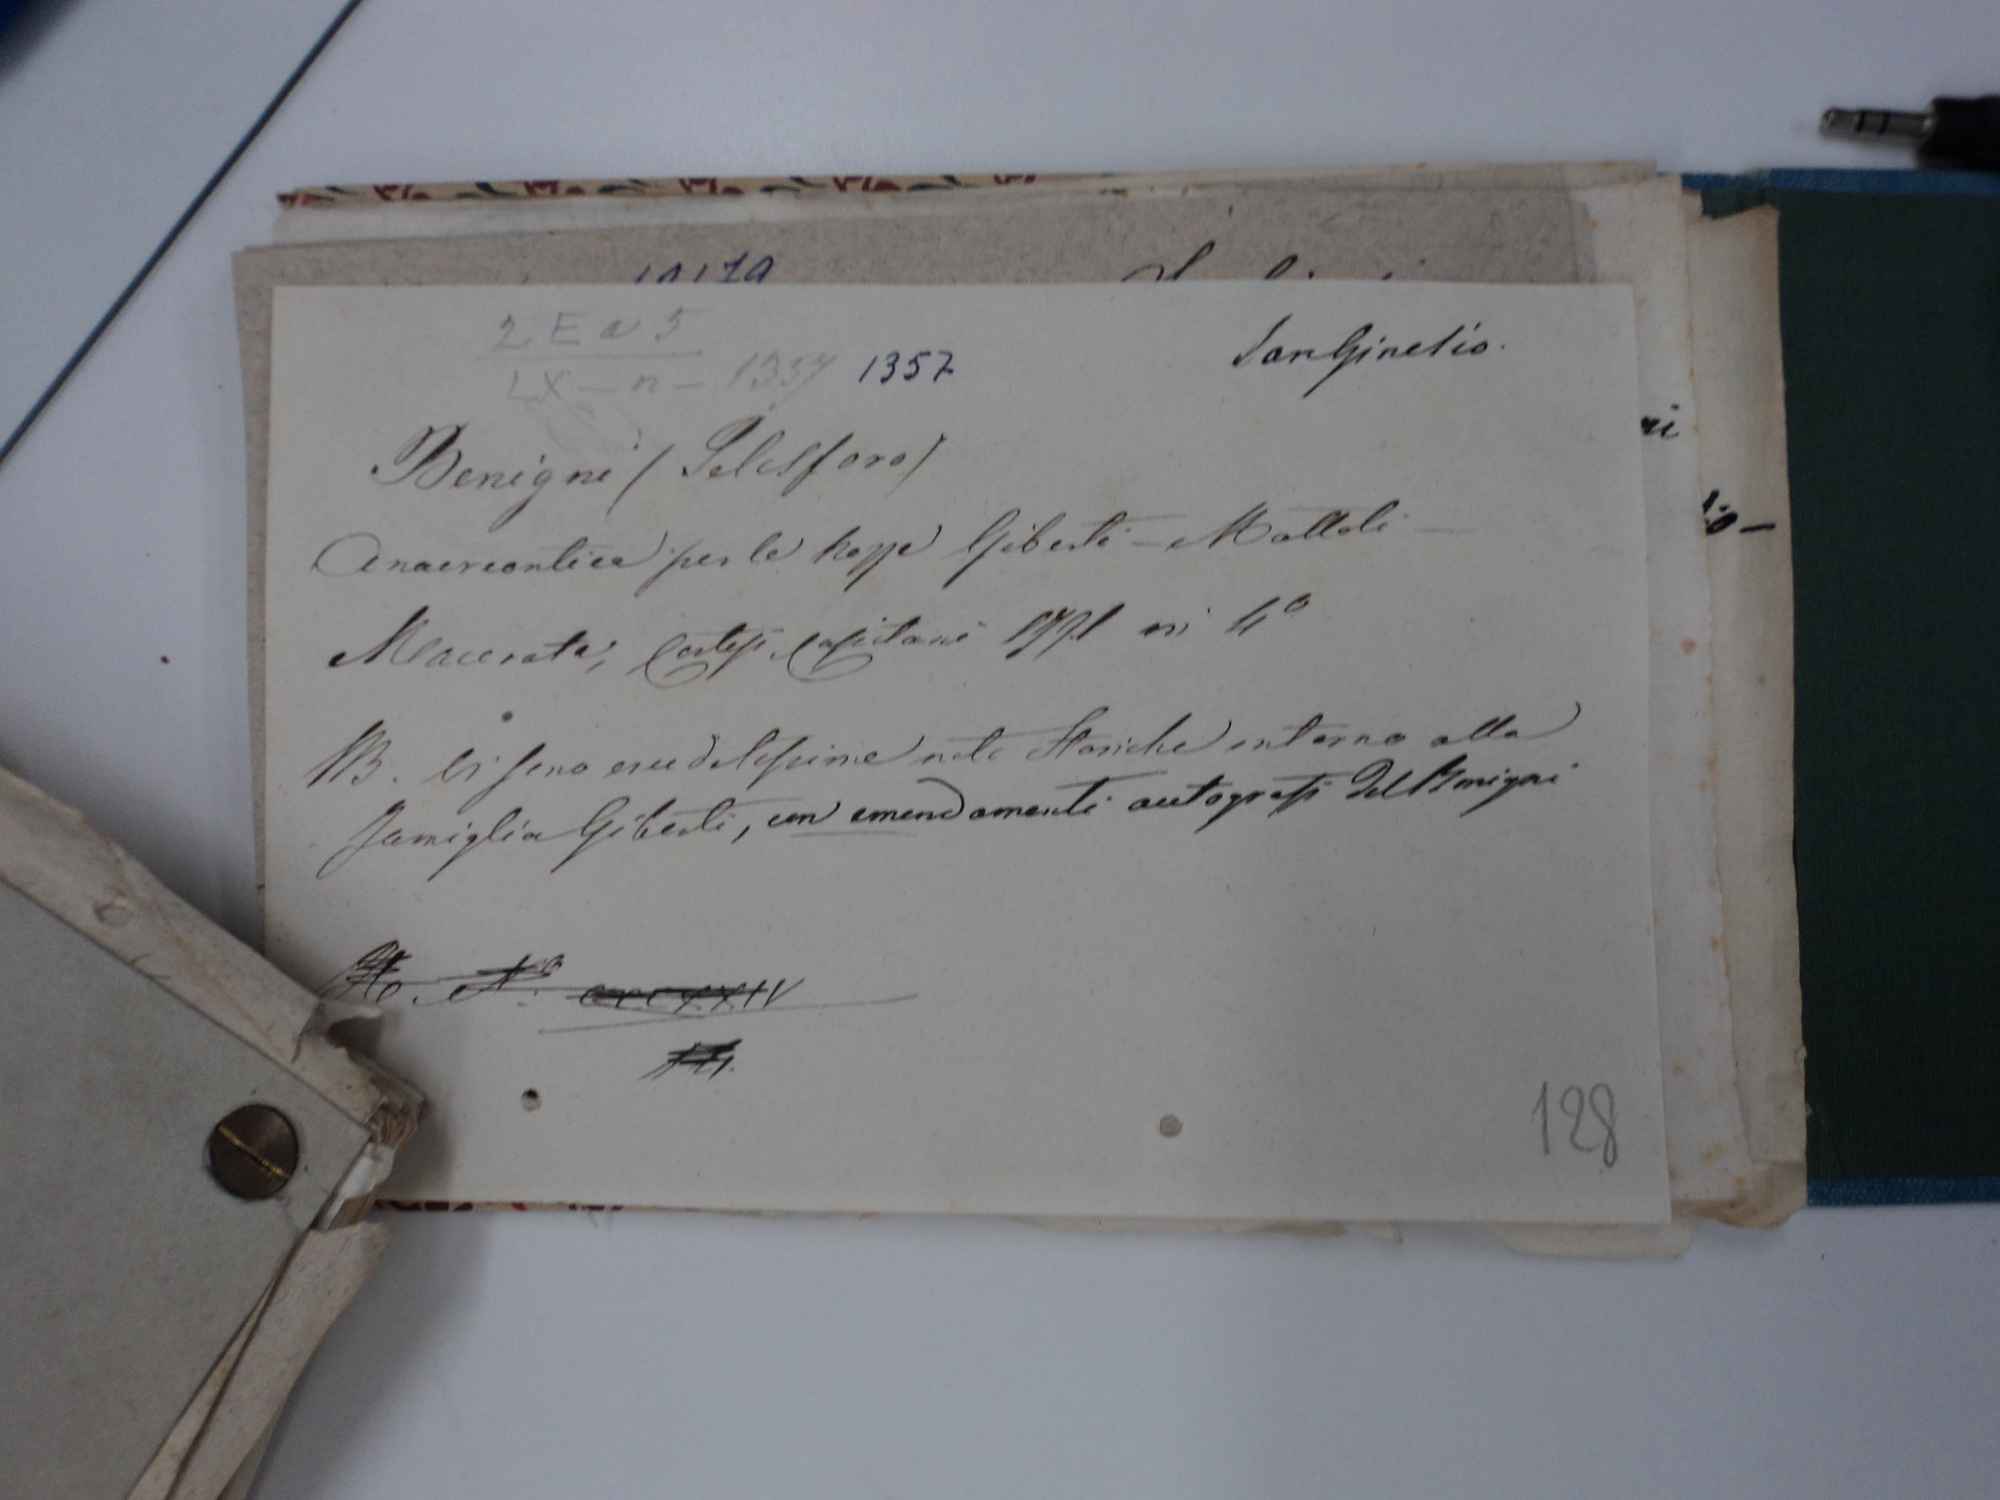 2 E a 5
LX - n - 1357 1357
San Ginesio.
Benigni (Telesforo)
Anacreontica per le nozze Giberti - Mattoli -
Macerata, Cortesi Capitani 1771 in 4º
NB. Vi sono eruditissime note storiche intorno alla
famiglia Giberti, con emendamenti autografi del Benigni
128